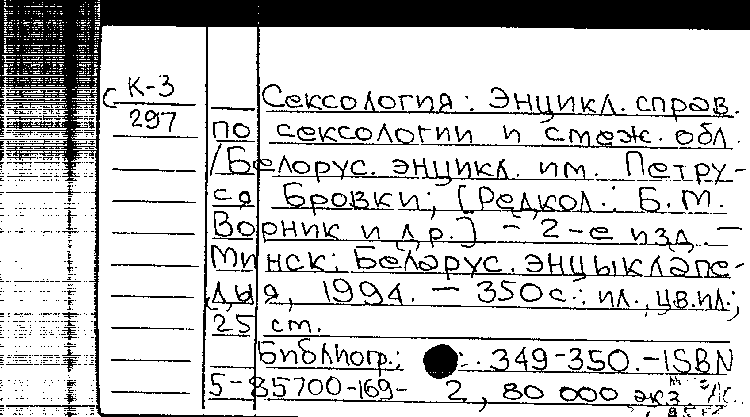 С К-3
297
Сексология: Энцикл. справ.
по сексологии и смеж. обл.
/Белорус. энцикл. им. Петру-
ся Бровки; [Редкол.: Б.М.
Ворник и др.] - 2-е изд. —
Минск: Беларус. энцыклапе-
дыя, 1994. — 350с.: ил., цв.ил.;
25 см.
Библиогр.: : 349-350. - ISBN
5-85700-169- 2, 80 000 экз